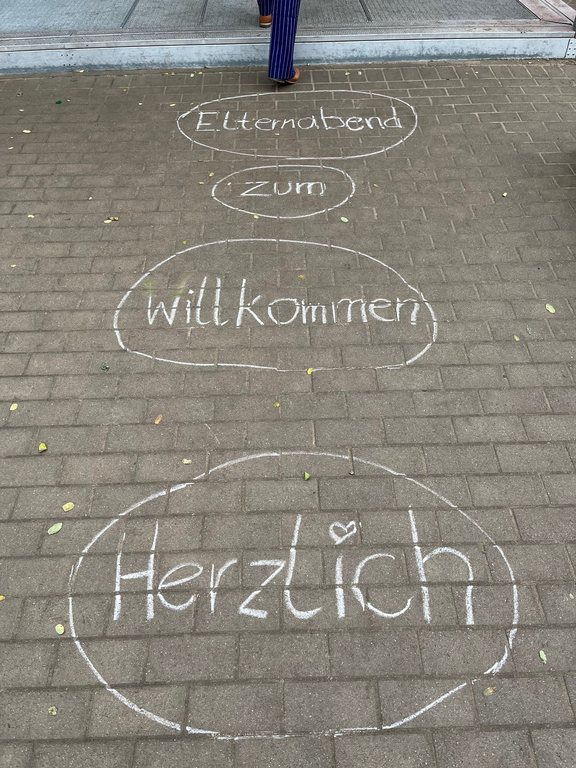 Herzlich
Willkommen
zum
Elternabend